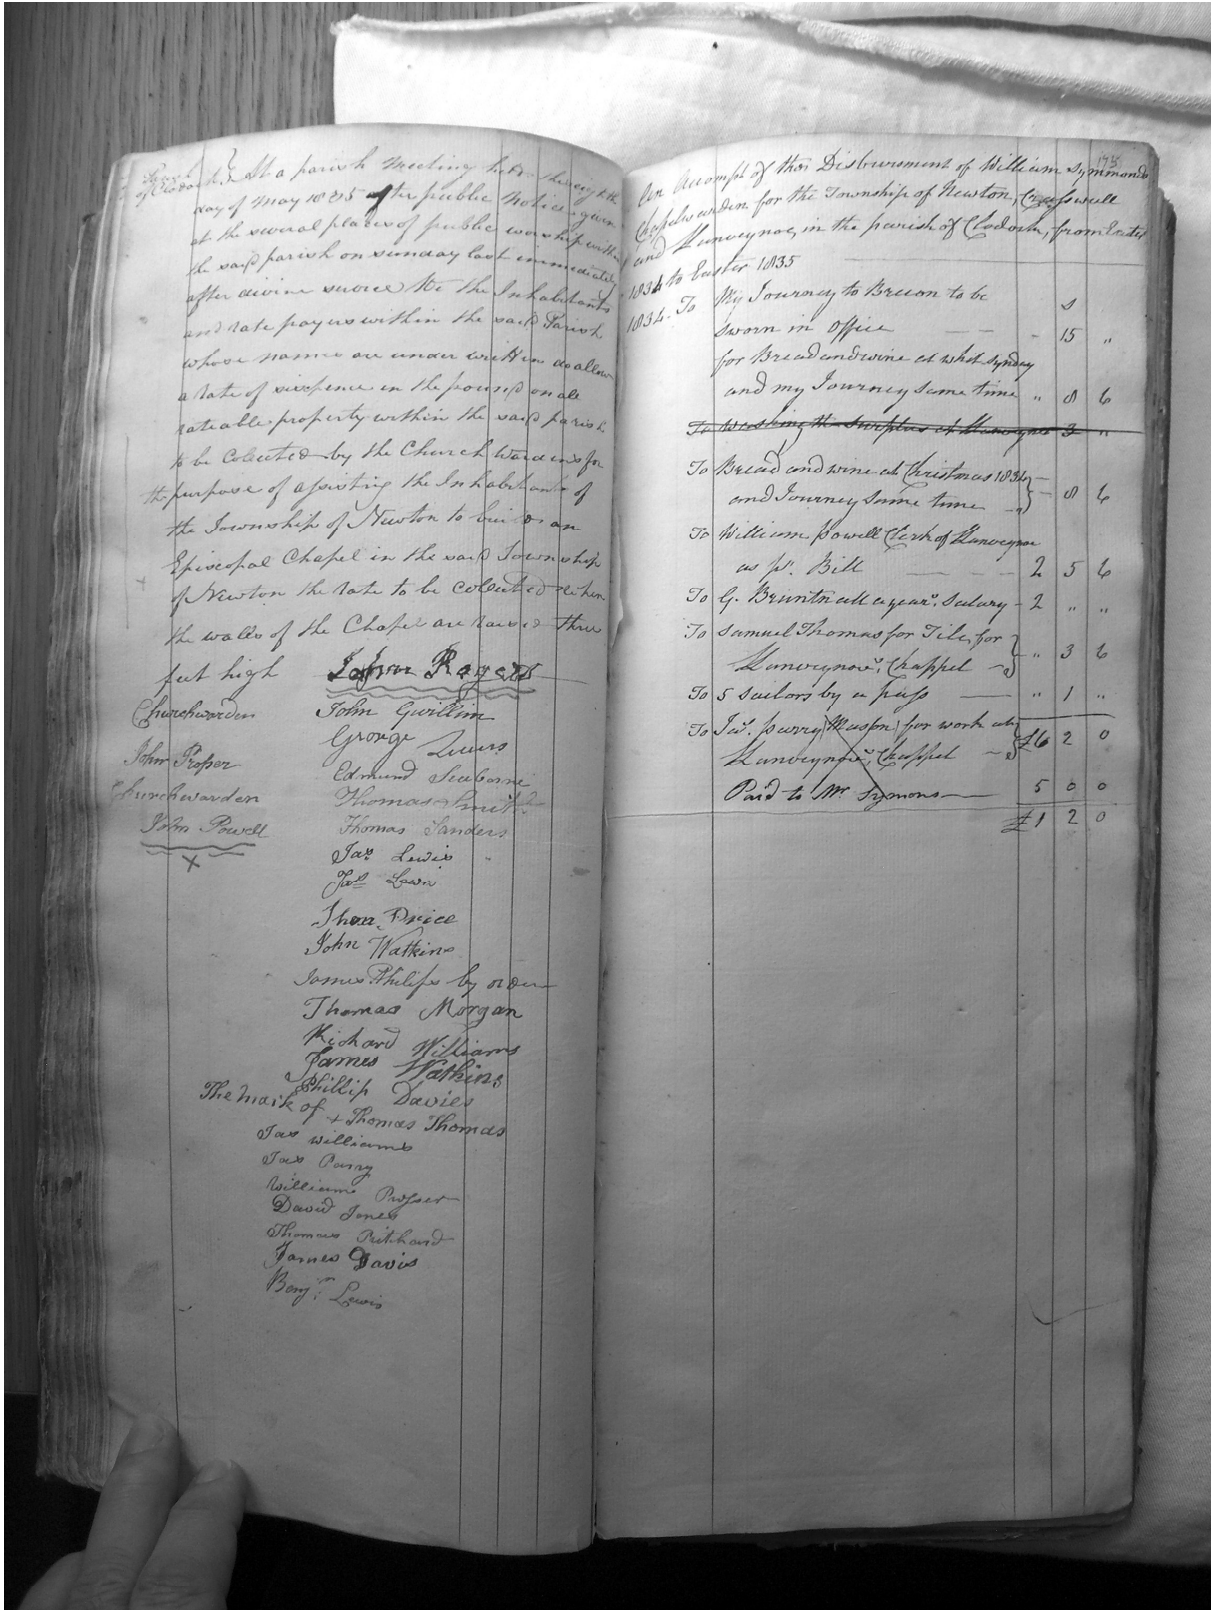 Parish of Clodock } At a parish Meeting held the eighth
day of May 1835 after public Notice given
at the several places of public worship within
the said parish on sunday last immediately
after divine service We the Inhabitants
and rate payers within the said Parish
whose names are under written do allow
a rate of sixpence in the pound on all
rateable property within the said parish
to be Colected by the Church Wardens for
the purpose of assisting the Inhabitants of
the Township of Newton to build an
Episcopal Chapel in the said Township
of Newton the rate to be colected when
the walls of the Chapel are raised three
feet high John Rogers
Churchwarden John Gwillim
George
John Proper Edmund Seaborne
Churchwarden Thomas Smith
John Powell Thomas Sanders
X Jas Lewis
Jas
Thos. Price
John Watkins
James Philips by order
Thomas Morgan
Richard Williams
James Watkins
Phillip Davies
The mark of + Thomas Thomas
Jas Williams
Jas Parry
William Prosser
David Jones
Thomas Pritchard
James Davis
Benjn. Lewis
175
An Accompt of the Disbursment of William Symmonds
Chapelwarden for the Township of Newton, Crasswall
and Llanveynoe, in the parish of Clodock, from Easter
1834 to Easter 1835
1834. To My Journey to Brecon to be s
sworn in Office - 15 "
for Bread and wine at whit synday
and my Journey same time " 8 6
To washing the Surplus at Llanveynoe 3 "
To Bread and wine at Christmas 1834
and Journey same time - 8 6
To William powell Clerk of Llanveynoe
as pr. Bill 2 5 6
To G. a years. Salary - 2 " "
To Samuel Thomas for Tile for
Llanveynoe, Chappel " 3 6
To 5 Sailors by a pass " 1 "
To Jas. parry (Mason) for work at
Llanveynoe, Chappel £6 2 0
Paid to Mr Symons 5 0 0
£1 2 0